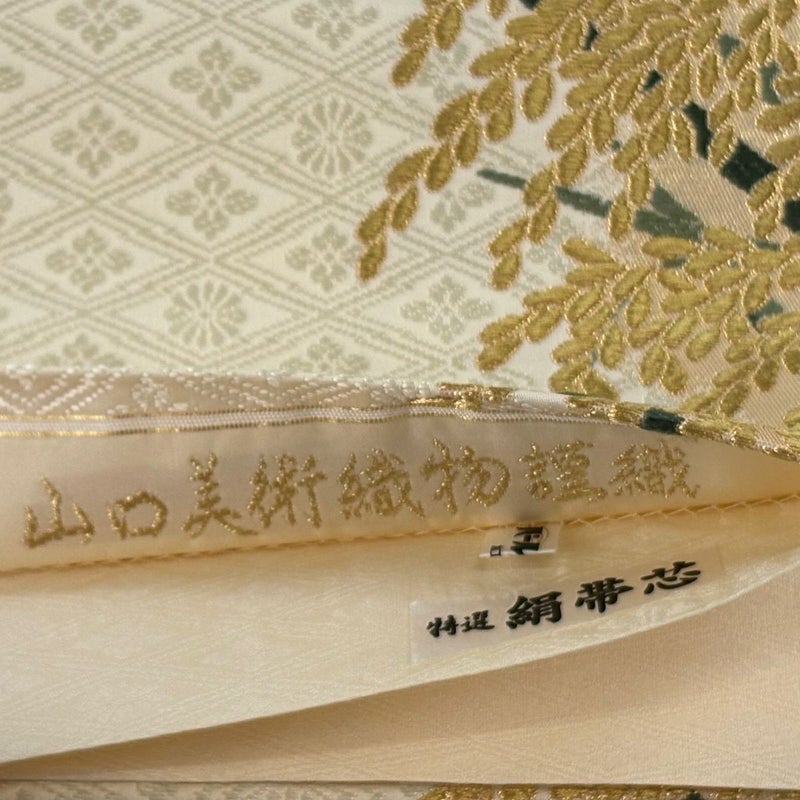 山口美術織物謹織
特選 絹帯芯